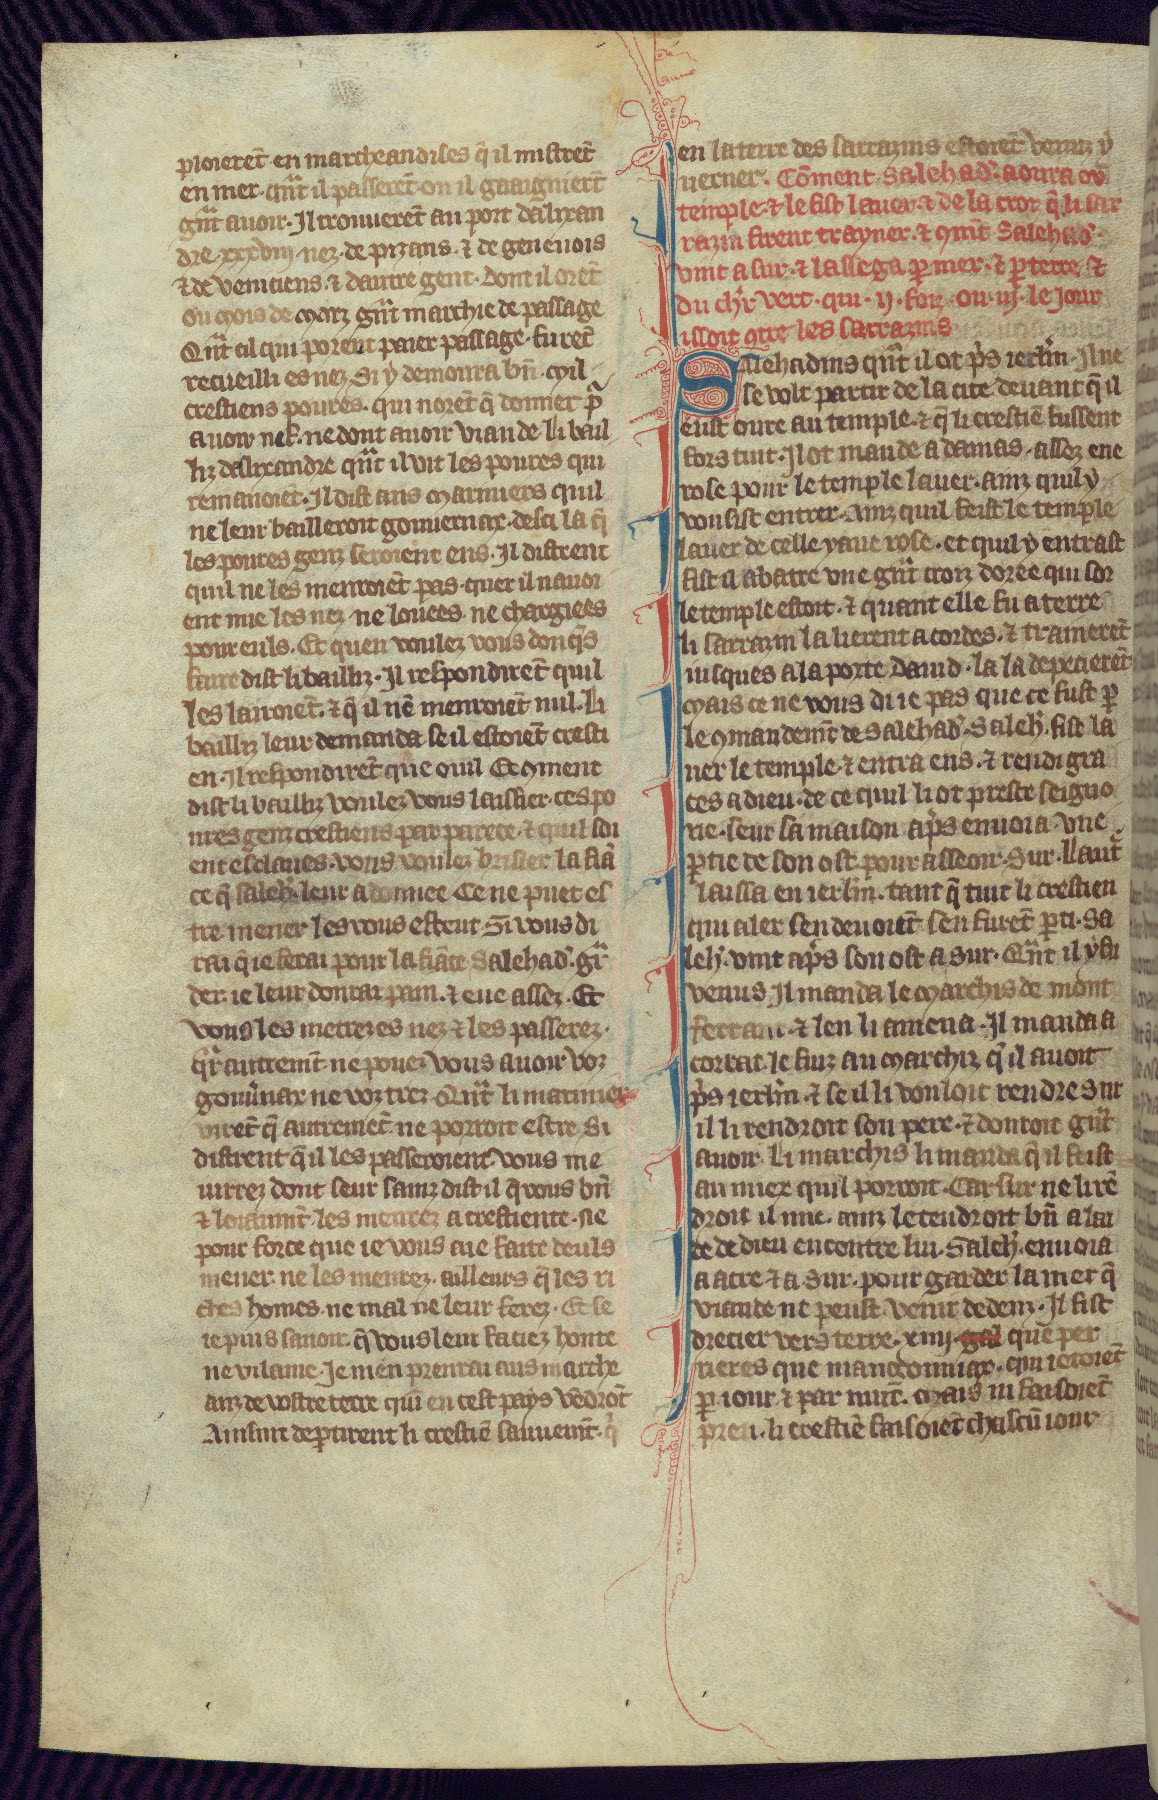 ploierēt en marcheandises q̄ il mistrēt
en mer. qn̄t il passerēt. ou il gaaignierēt
gn̄t auoir. Il trouuerēt au port dalixan
dre .xxxviij. nez. de pizans. ⁊ de geneuois
⁊ de veniciens. ⁊ dautre gent. dont il orēt
ou mois de marz gn̄t marchie de passage
Qn̄t cil qui porent paier passage. furēt
recueilli es nez. Si y demoura bn̄. mil
crestiens poures. qui norēt q̄ donner pͬ
auoir nef. ne dont auoir viande. li bail
liz dalixandre qn̄t il vit les poures qui
remanoiēt. Il dist aus mariniers quil
ne leur bailleroit gouuernax. desci la q̄
les poures genz seroient ens. Il distrent
quil ne les menroiēt pas. quer il nauoi
ent mie les nez ne louees. ne chargiees
pour euls. Et quen voulez vous don q̄s
faire dist li bailliz. Il respondirēt quil
les lairoiēt. ⁊ q̄ il nē menroiēt nul. li
bailliz leur demanda. se il estoiēt cresti
en. Il respondirēt que ouil Et ꝯment
dist li bailliz voulez vous laissier. ces po
ures genz crestiens par parece. ⁊ quil soi
ent esclaues. vous voulez brisier la fiā
ce q̄ saleh̄. leur a donnee Ce ne puet es
tre mener les vous esteut. Si vous di
rai q̄ ie ferai pour la fiāce Salehad̄. gͬ
der. ie leur donrai pain. ⁊ eue assez. Et
vous les metrez es nez ⁊ les passerez.
qͬ autremēt ne pouez vous auoir voz
gouu̅nax ne voz trez. Qn̄t li marinier
virēt q̄ autremēt ne porroit estre. Si
distrent q̄ il les passeroient. vous me
iurrez dont seur sainz dist il q̄ vous bn̄
⁊ loiaumt̄. les menrez a crestiente. Ne
pour force que ie vous aie faite deuls
mener. ne les menrez. ailleurs q̄ les ri
ches homes. ne mal ne leur ferez. Et se
ie puis sauoir. q̄ vous leur faciez honte
ne vilainie. Je men prenrai aus marche
anz de vostre terre qui en cest pays vēdrōt
Ainsint deꝑtirent li crestiē sauuemt̄. qͥ
en la terre des sarrazins estoiēt venuz y
uerner. Cōment Salehad̄. aoura ou
temple. ⁊ le fist lauer. ⁊ de la croz q̄ li sar
razin firent trayner. ⁊ ꝯmt̄ Salehad̄.
vint a sur. ⁊ lassega ꝑ mer. ⁊ ꝑ terre. ⁊
du chlr̄ vert. qui. ij. foiz ou. iij. le jour
issoit ꝯtre les sarrazins
Salehadins qn̄t il ot pͥs ierlm̄. Il ne
se volt partir de la cite. deuant q̄ il
eust oure au temple. ⁊ q̄ li crestiē fussent
fors tuit. Il ot mande a damas. assez eue
rose pour le temple lauer. ainz quil y
vousist entrer. Ainz quil feist le temple
lauer de celle yaue rose. et quil y entrast
fist il abatre vne gn̄t croiz doree qui sor
le temple estoit. ⁊ quant elle fu a terre
li sarrazin la lierent a cordes. ⁊ trainerēt
iusques a la porte dauid. la la depecierēt.
mais ce ne vous di ie pas que ce fust ꝑ
le ꝯmandemt̄ de Salehad̄. Saleh̄. fist la
uer le temple. ⁊ entra ens. ⁊ rendi gra
ces a dieu. de ce quil li ot preste seigno
rie. seur sa maison apͥs enuoia. vne
ꝑtie de son ost pour asseoir. Sur. Lautͬ
laissa en ierlm̄. tant q̄ tuit li crestien
qui aler sen deuoiēt. sen furēt ꝑti. Sa
leh̄. vint apͥs son ost a sur. Qn̄t il y fu
venus. Il manda le marchis de mont
ferrant. ⁊ len li amena. Il manda a
corrat. le fuiz au marchiz q̄ il auoit
pͥs ierlm̄. ⁊ se il li vouloit rendre Sur
il li rendroit son pere. ⁊ donroit gn̄t
auoir. Li marchis li manda q̄ il feist
au miex quil porroit. Car sur ne li rē
droit il mie. ainz le tendroit bn̄ a lai
de de dieu encontre lui. Saleh̄. enuoia
a acre ⁊ a Sur. pour garder la mer q̄
viande ne peust venir dedenz. Il fist
drecier vers terre. xiiij. gal que per
rieres que mangonniax. qui ietoiēt
ꝑ iour ⁊ par nuit. mais ni faisoiēt
preu. li crestiē faisoiēt chascū iour